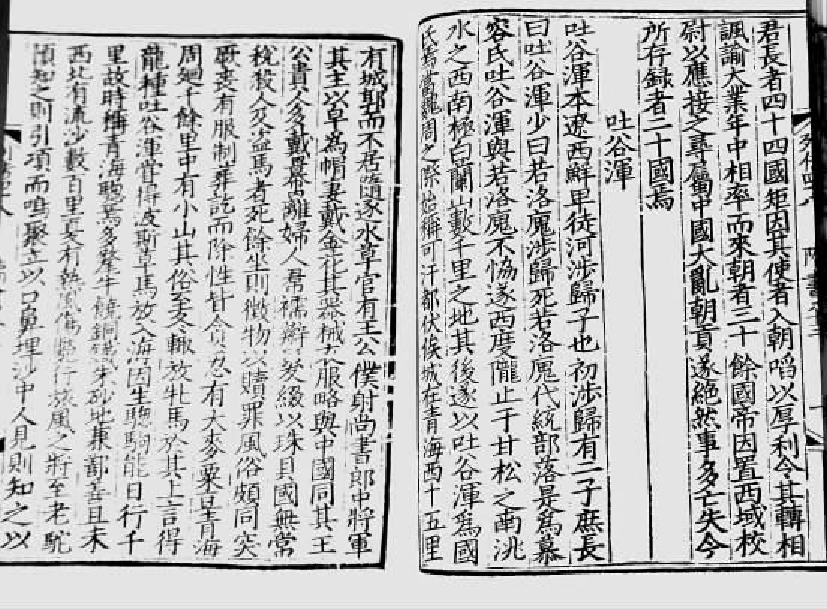 君長者四十四國矩因其使者入朝啗以厚利令其轉相
諷諭大業年中相率而來朝者三十餘國帝因置西域校
尉以應接之尋屬中國大亂朝貢遂絶然事多亡失今
所存録者二十國焉
吐谷渾
吐谷渾本遼西鮮卑徒河涉歸子也初涉歸有二子庶長
曰吐谷渾少曰若洛廆涉歸死若洛廆代統部落是爲慕
容氏吐谷渾與若洛廆不恊遂西度隴止于甘松之南洮
水之西南極白蘭山數千里之地其後遂以吐谷渾爲國
氏焉當魏周之際始稱可汗都伏俟城在青海西十五里
有城郭而不居隨逐水草官有王公僕射尚書郎中將軍
其主以皁爲帽妻戴金花其器械衣服略與中國同其王
公貴人多戴羃䍦婦人裙襦辮髮綴以珠貝國無常
稅殺人及盗馬者死餘坐則徵物以贖罪風俗頗同突
厥喪有服制葬訖而除性皆貪忍有大麥粟豆青海
周廻千餘里中有小山其俗至冬輒放牝馬於其上言得
龍種吐谷渾嘗得波斯草馬放入海因生驄駒能日行千
里故時稱青海驄焉多犛牛饒銅鐵朱砂地兼鄯善且末
西北有流沙數百里夏有熱風傷斃行旅風之將至老駝
預知之則引項而鳴聚立以口鼻埋沙中人見則知之以